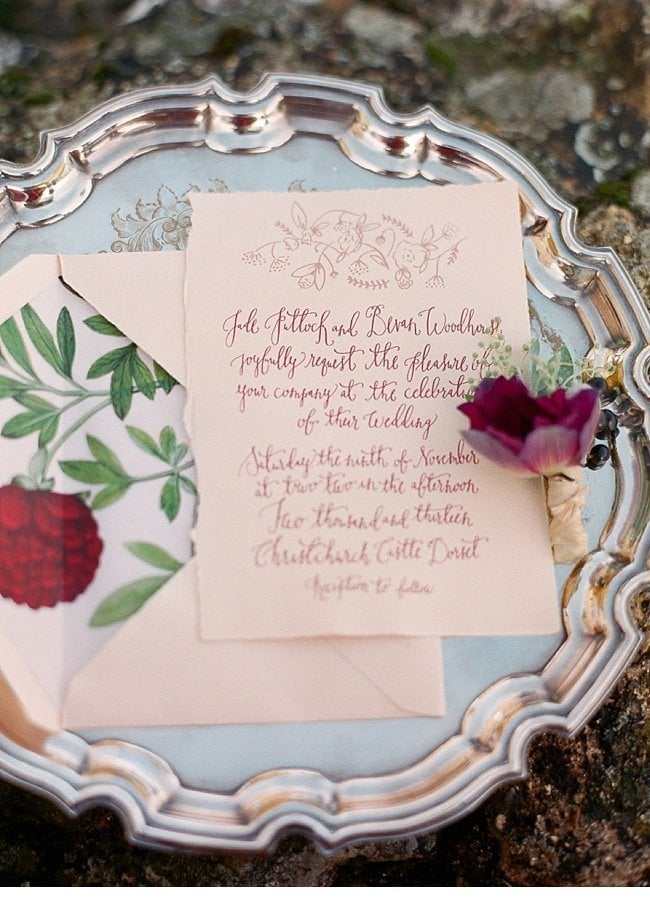 Jade Pittock and Bevan Woodhouse
joyfully request the pleasure of
your company at the celebration
of their Wedding
Saturday the ninth of November
at two two in the afternoon
Two thousand and thirteen
Christchurch Castle Dorset
Reception to follow